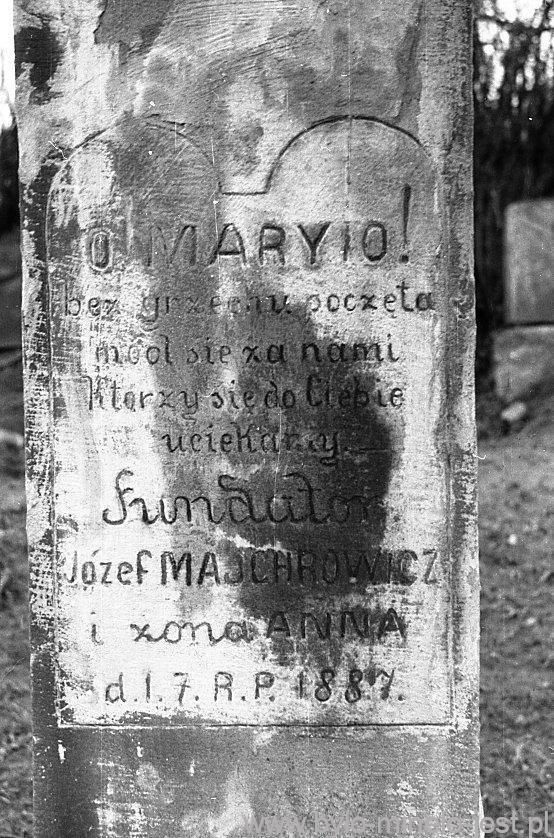 O MARYIO!
bez grzechu poczęta
módl się za nami
Którzy się do Ciebie
uciekamy.
Fundator
Józef MAJCHROWICZ
i żona ANNA
d. 1. 7. R.P. 1887.